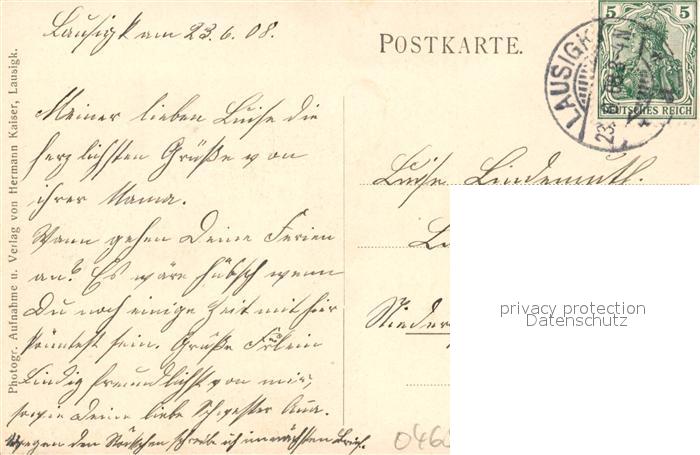 Lausigk am 23.6.08.
POSTKARTE.
5 5
DEUTSCHES REICH
LAUSIGK
23.6.08.
Meiner lieben Luise die
herzlichsten Grüße von
ihrer Mama.
Wann gehen Deine Ferien
an? Es wäre hübsch wenn
Du noch einige Zeit mit hier
könntest sein. Grüße Frlein
Lindig freundlichst von mir,
sowie Deine liebe Schwester Anna.
Wegen den schreibe ich im nächsten Brief.
Photogr. Aufnahme u. Verlag von Hermann Kaiser, Lausigk.
Luise Lindemuth.
Nieder
privacy protection
Datenschutz